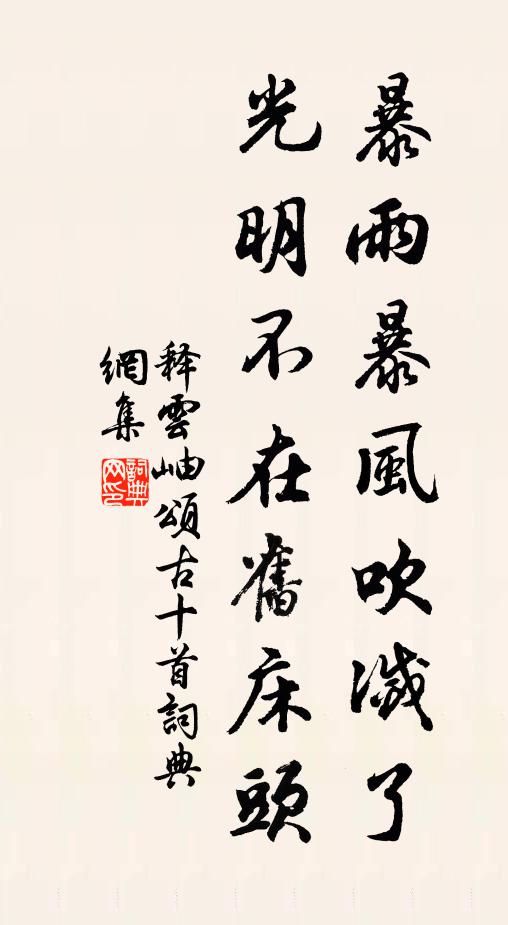 暴雨暴風吹滅了
光明不在舊床頭
释雲岫頌古十首詞典
網集
詞典网印